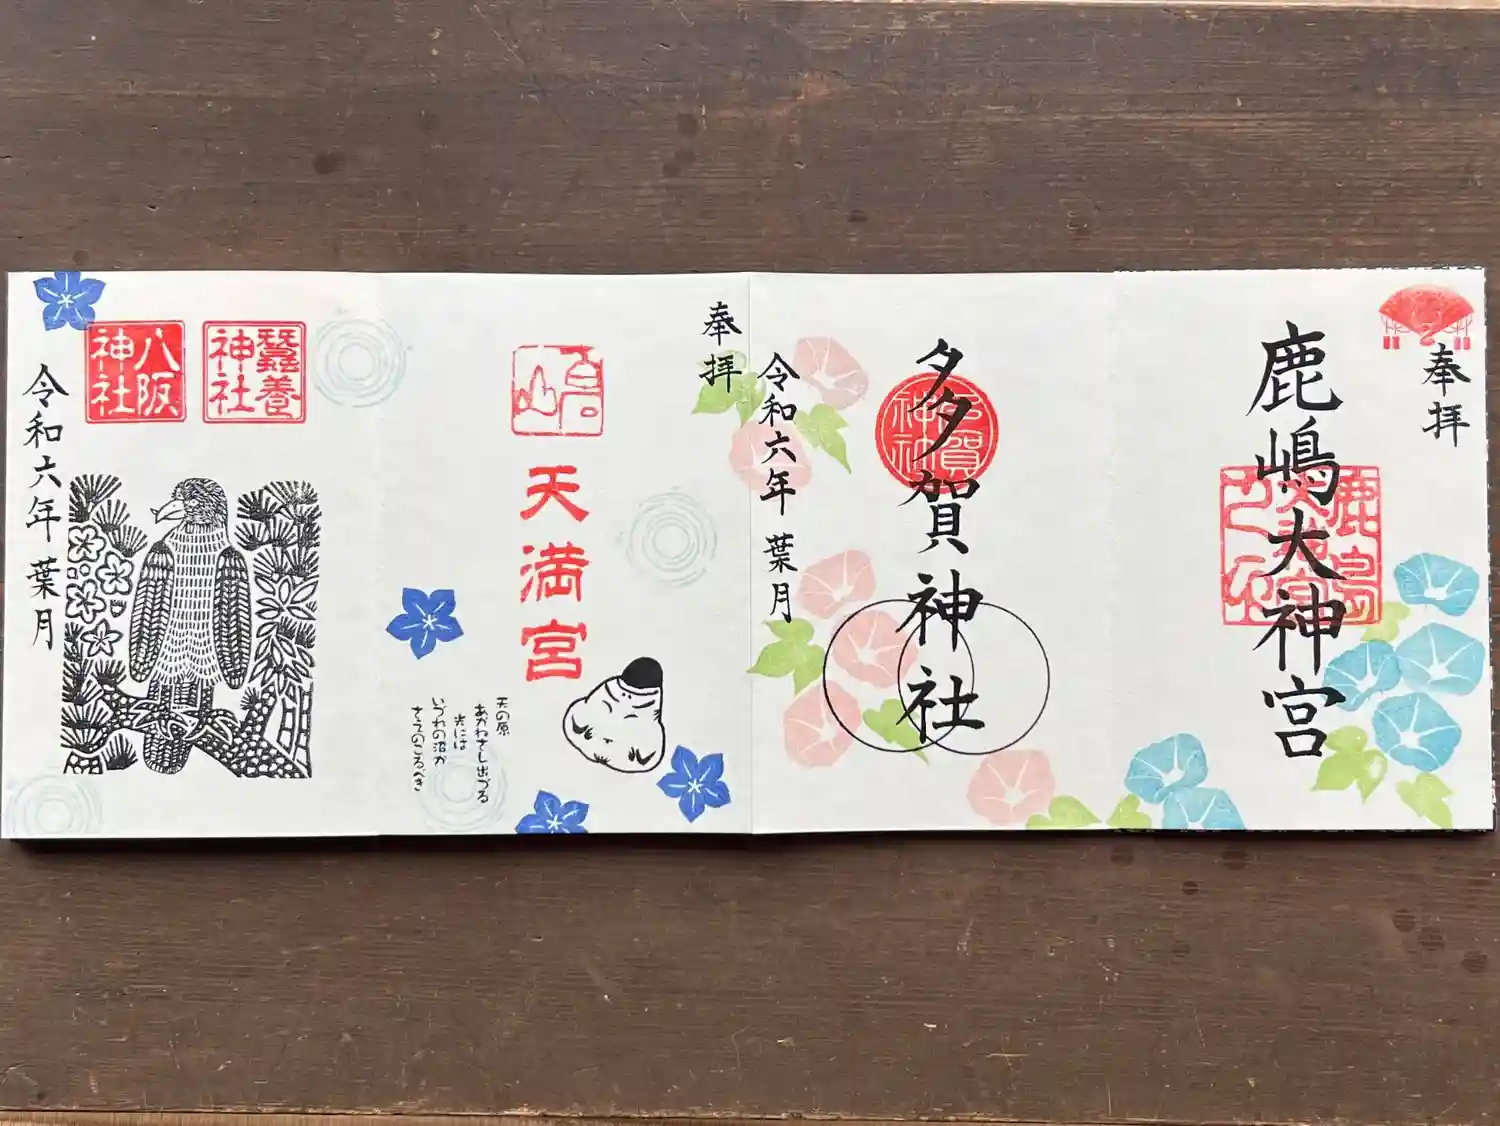 奉拝
鹿嶋大神宮
多賀神社
多賀神社
令和六年 葉月
奉拝
天満宮
天の原
あかねさし出づる
光には
いづれの沼か
さえのこるべき
蠶養神社
八阪神社
令和六年 葉月